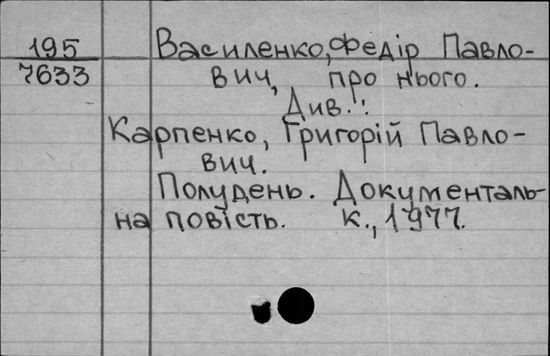 195
7633
Василенко, Федір Павло-
вич, про нього.
Див.:
Карпенко, Григорій Павло-
вич.
Полудень. Документаль-
на повість. К., 1977.